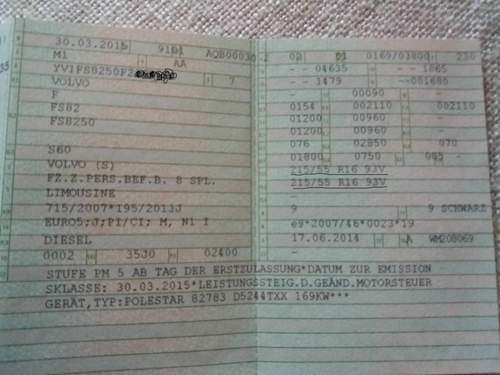 30.03.2015 9101 AQB00030
M1 AA
YV1FS8250F2 7
VOLVO
F
FS82
FS8250
-
S60
VOLVO (S)
FZ.Z.PERS.BEF.B. 8 SPL.
LIMOUSINE
715/2007*195/2013J
EURO5;J;PI/CI; M, N1 I
DIESEL
0002 35J0 02400
02 01 0169/03800 230
- - 04635 - - 1865
- - 1479 - -001680
- 00090 - -
0154 002110 002110
01200 00960 - -
01200 00960 - -
076 02850 070
01800 0750 085 -
215/55 R16 93V
215/55 R16 93V
-
9 9 SCHWARZ
e9*2007/46*0023*19
17.06.2014 A WM208069
STUFE PM 5 AB TAG DER ERSTZULASSUNG*DATUM ZUR EMISSION
SKLASSE: 30.03.2015*LEISTUNGSSTEIG.D.GEÄND.MOTORSTEUER
GERÄT,TYP:POLESTAR 82783 D5244TXX 169KW***